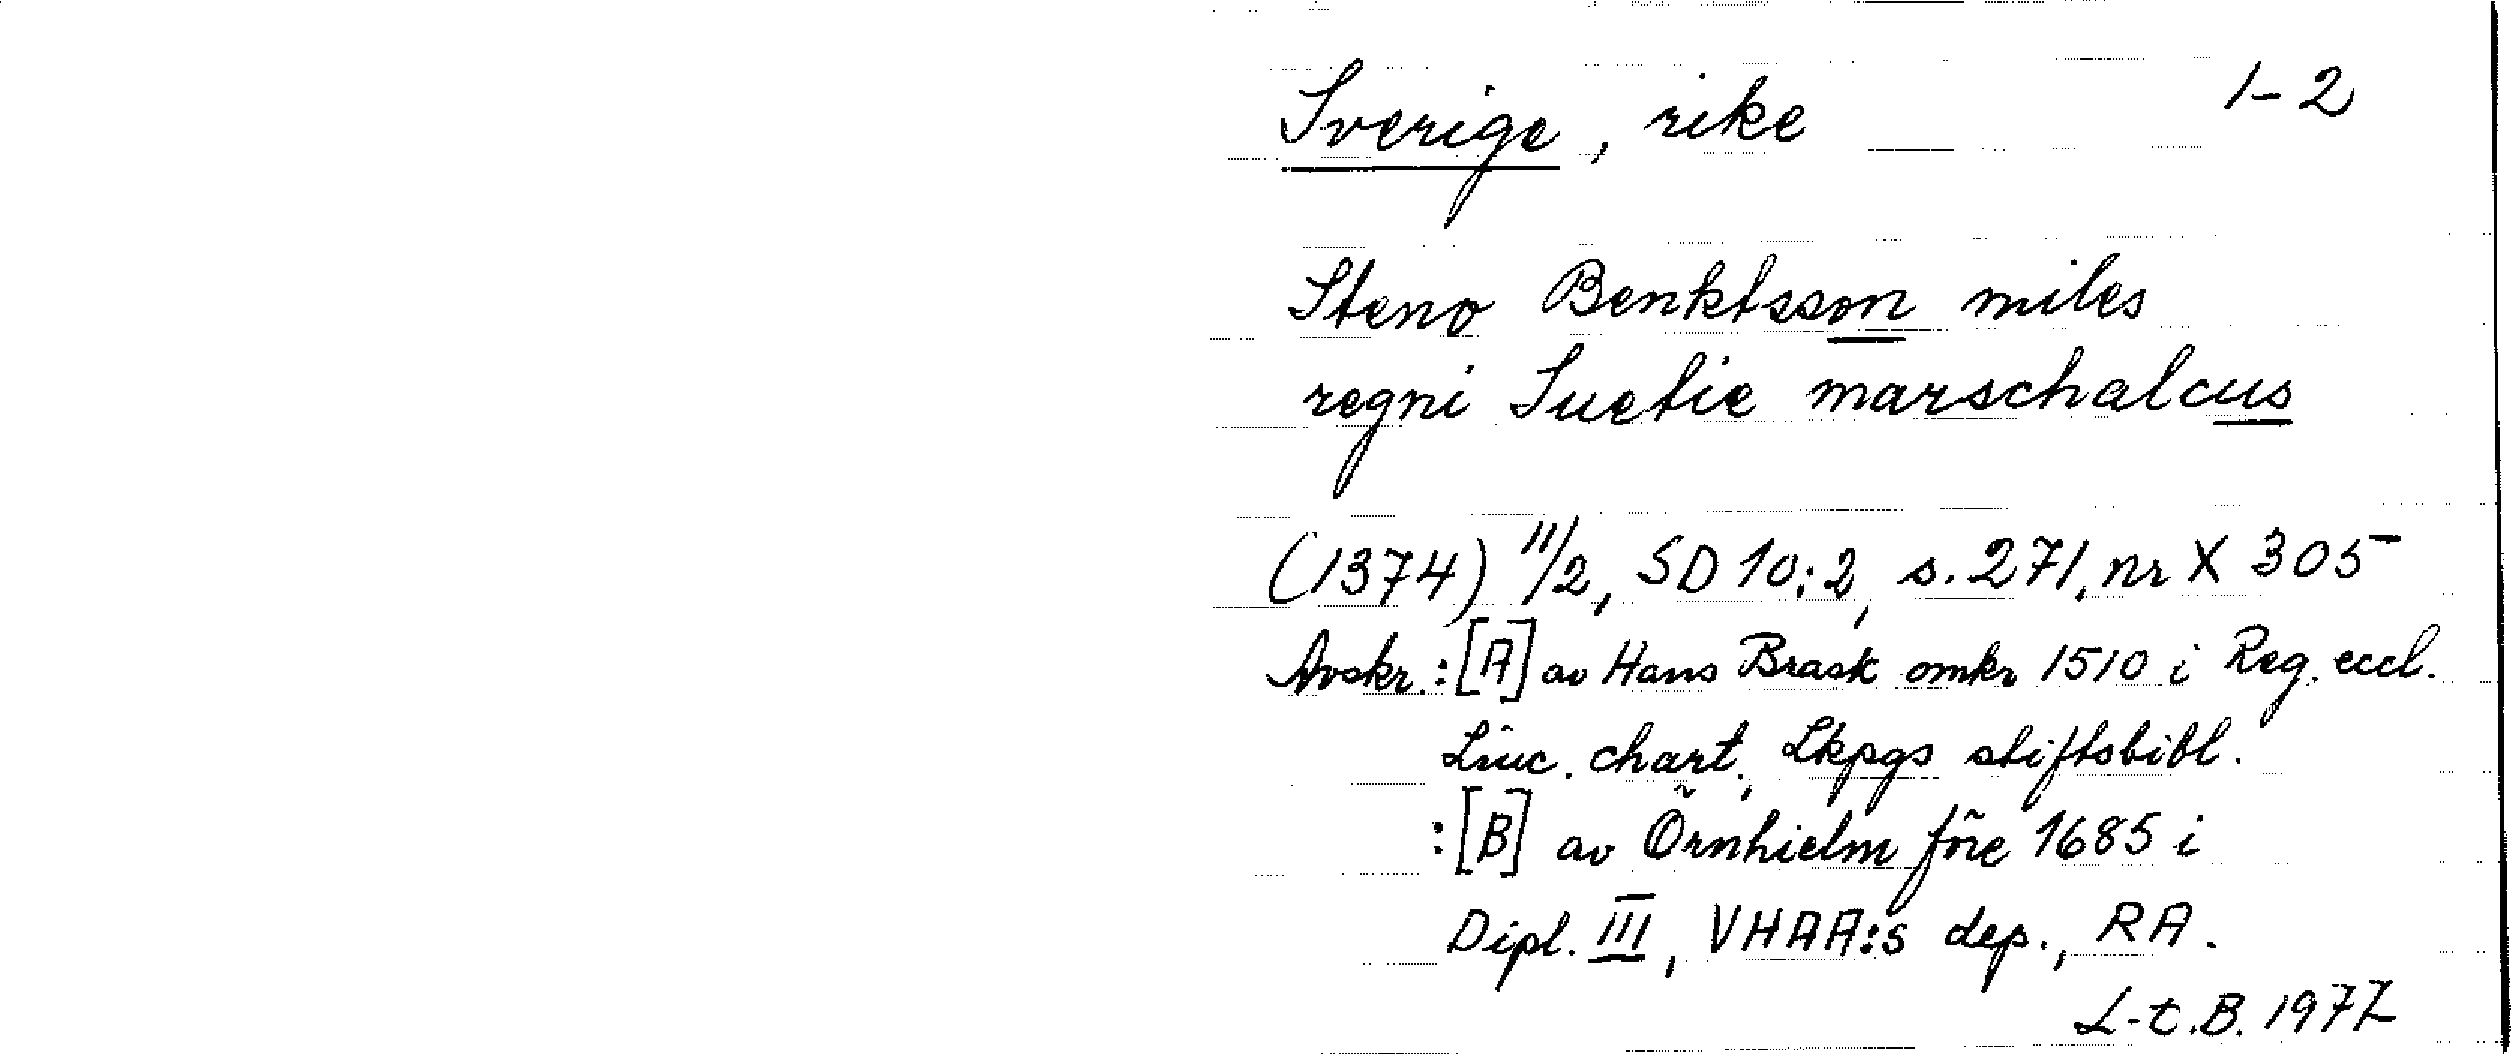 Sverige, rike 1-2
Steno Benktsson miles
regni Suetie marschalcus
(1374) 11/2, SD 10:2, s. 271, nr X 305
Avskr.: [A] av Hans Brask omkr 1510 i Reg. eccl.
Linc. chart., Lkpgs stiftsbibl.
: [B] av Örnhielm före 1685 i
Dipl. III, VHAA:s dep., RA.
L-t.B. 1977